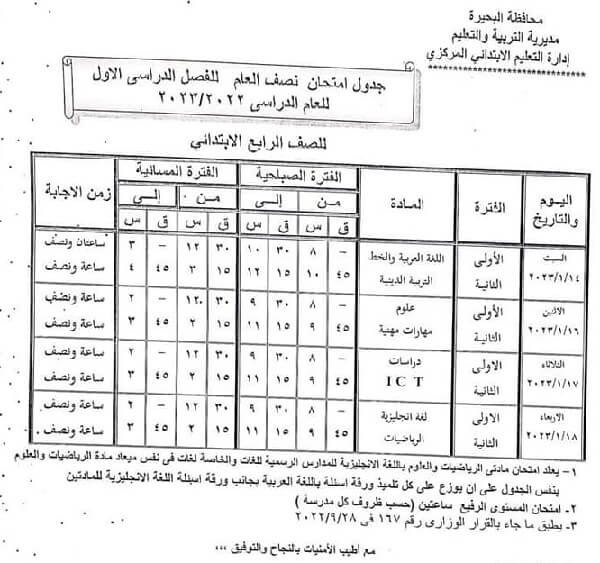 محافظة البحيرة
مديرية التربية والتعليم
إدارة التعليم الابتدائي المركزي
********************
جدول امتحان نصف العام للفصل الدراسى الاول
للعام الدراسى ٢٠٢٣/٢٠٢٢
للصف الرابع الابتدائي
اليوم والتاريخ الفترة المادة الفترة الصباحية الفترة المسائية زمن الاجابة
من إلى من إلى
ق س ق س ق س ق س
السبت الأولى اللغة العربية والخط – ٨ ٣٠ ١٠ ٣٠ ١٢ – ٣ ساعتان ونصف
٢٠٢٣/١/١٤ الثانية التربية الدينية ٤٥ ١٠ ١٥ ١٢ ١٥ ٣ ٤٥ ٤ ساعة ونصف
الاثنين الأولى علوم – ٨ ٣٠ ٩ ٣٠ ١٢ – ٢ ساعة ونصف
٢٠٢٣/١/١٦ الثانية مهارات مهنية ٤٥ ٩ ١٥ ١١ ١٥ ٢ ٤٥ ٣ ساعة ونصف
الثلاثاء الاولى دراسات – ٨ ٣٠ ٩ ٣٠ ١٢ – ٢ ساعة ونصف
٢٠٢٣/١/١٧ الثانية ICT ٤٥ ٩ ١٥ ١١ ١٥ ٢ ٤٥ ٣ ساعة ونصف
الاربعاء الاولى لغة انجليزية – ٨ ٣٠ ٩ ٣٠ ١٢ – ٢ ساعة ونصف
٢٠٢٣/١/١٨ الثانية الرياضيات ٤٥ ٩ ١٥ ١١ ١٥ ٢ ٤٥ ٣ ساعة ونصف
١ – يعقد امتحان مادتى الرياضيات والعلوم باللغة الانجليزية للمدارس الرسمية للغات والخاصة لغات فى نفس ميعاد مادة الرياضيات والعلوم
بنفس الجدول على ان يوزع على كل تلميذ ورقة اسئلة باللغة العربية بجانب ورقة اسئلة اللغة الانجليزية للمادتين
٢- امتحان المستوى الرفيع ساعتين (حسب ظروف كل مدرسة )
٣- يطبق ما جاء بالقرار الوزارى رقم ١٦٧ فى ٢٠٢٢/٩/٢٨
مع اطيب الأمنيات بالنجاح والتوفيق ،،،